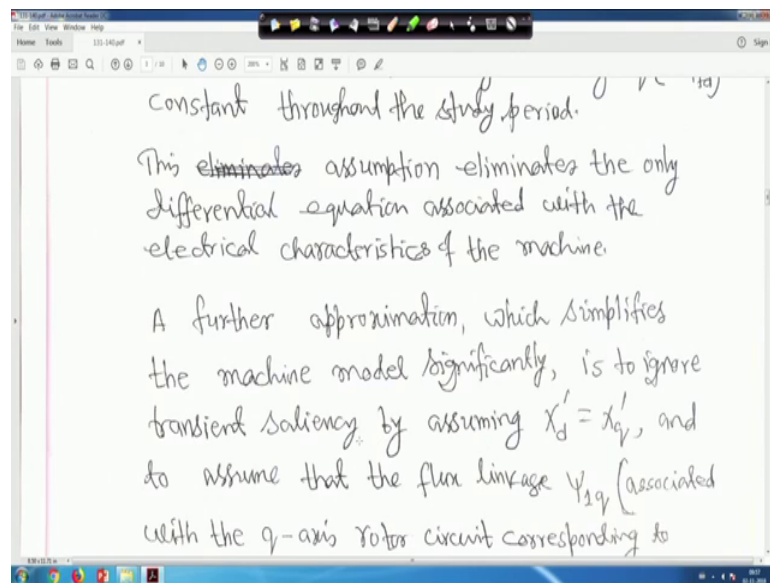 131-140.pdf - Adobe Acrobat Reader DC
File Edit View Window Help
Home Tools 131-140.pdf × Sign
constant throughout the study period.
This eliminates assumption eliminates the only
differential equation associated with the
electrical characteristics of the machine.
A further approximation, which simplifies
the machine model significantly, is to ignore
transient saliency by assuming X'd = X'q, and
to assume that the flux linkage Ψ1q (associated
with the q-axis rotor circuit corresponding to